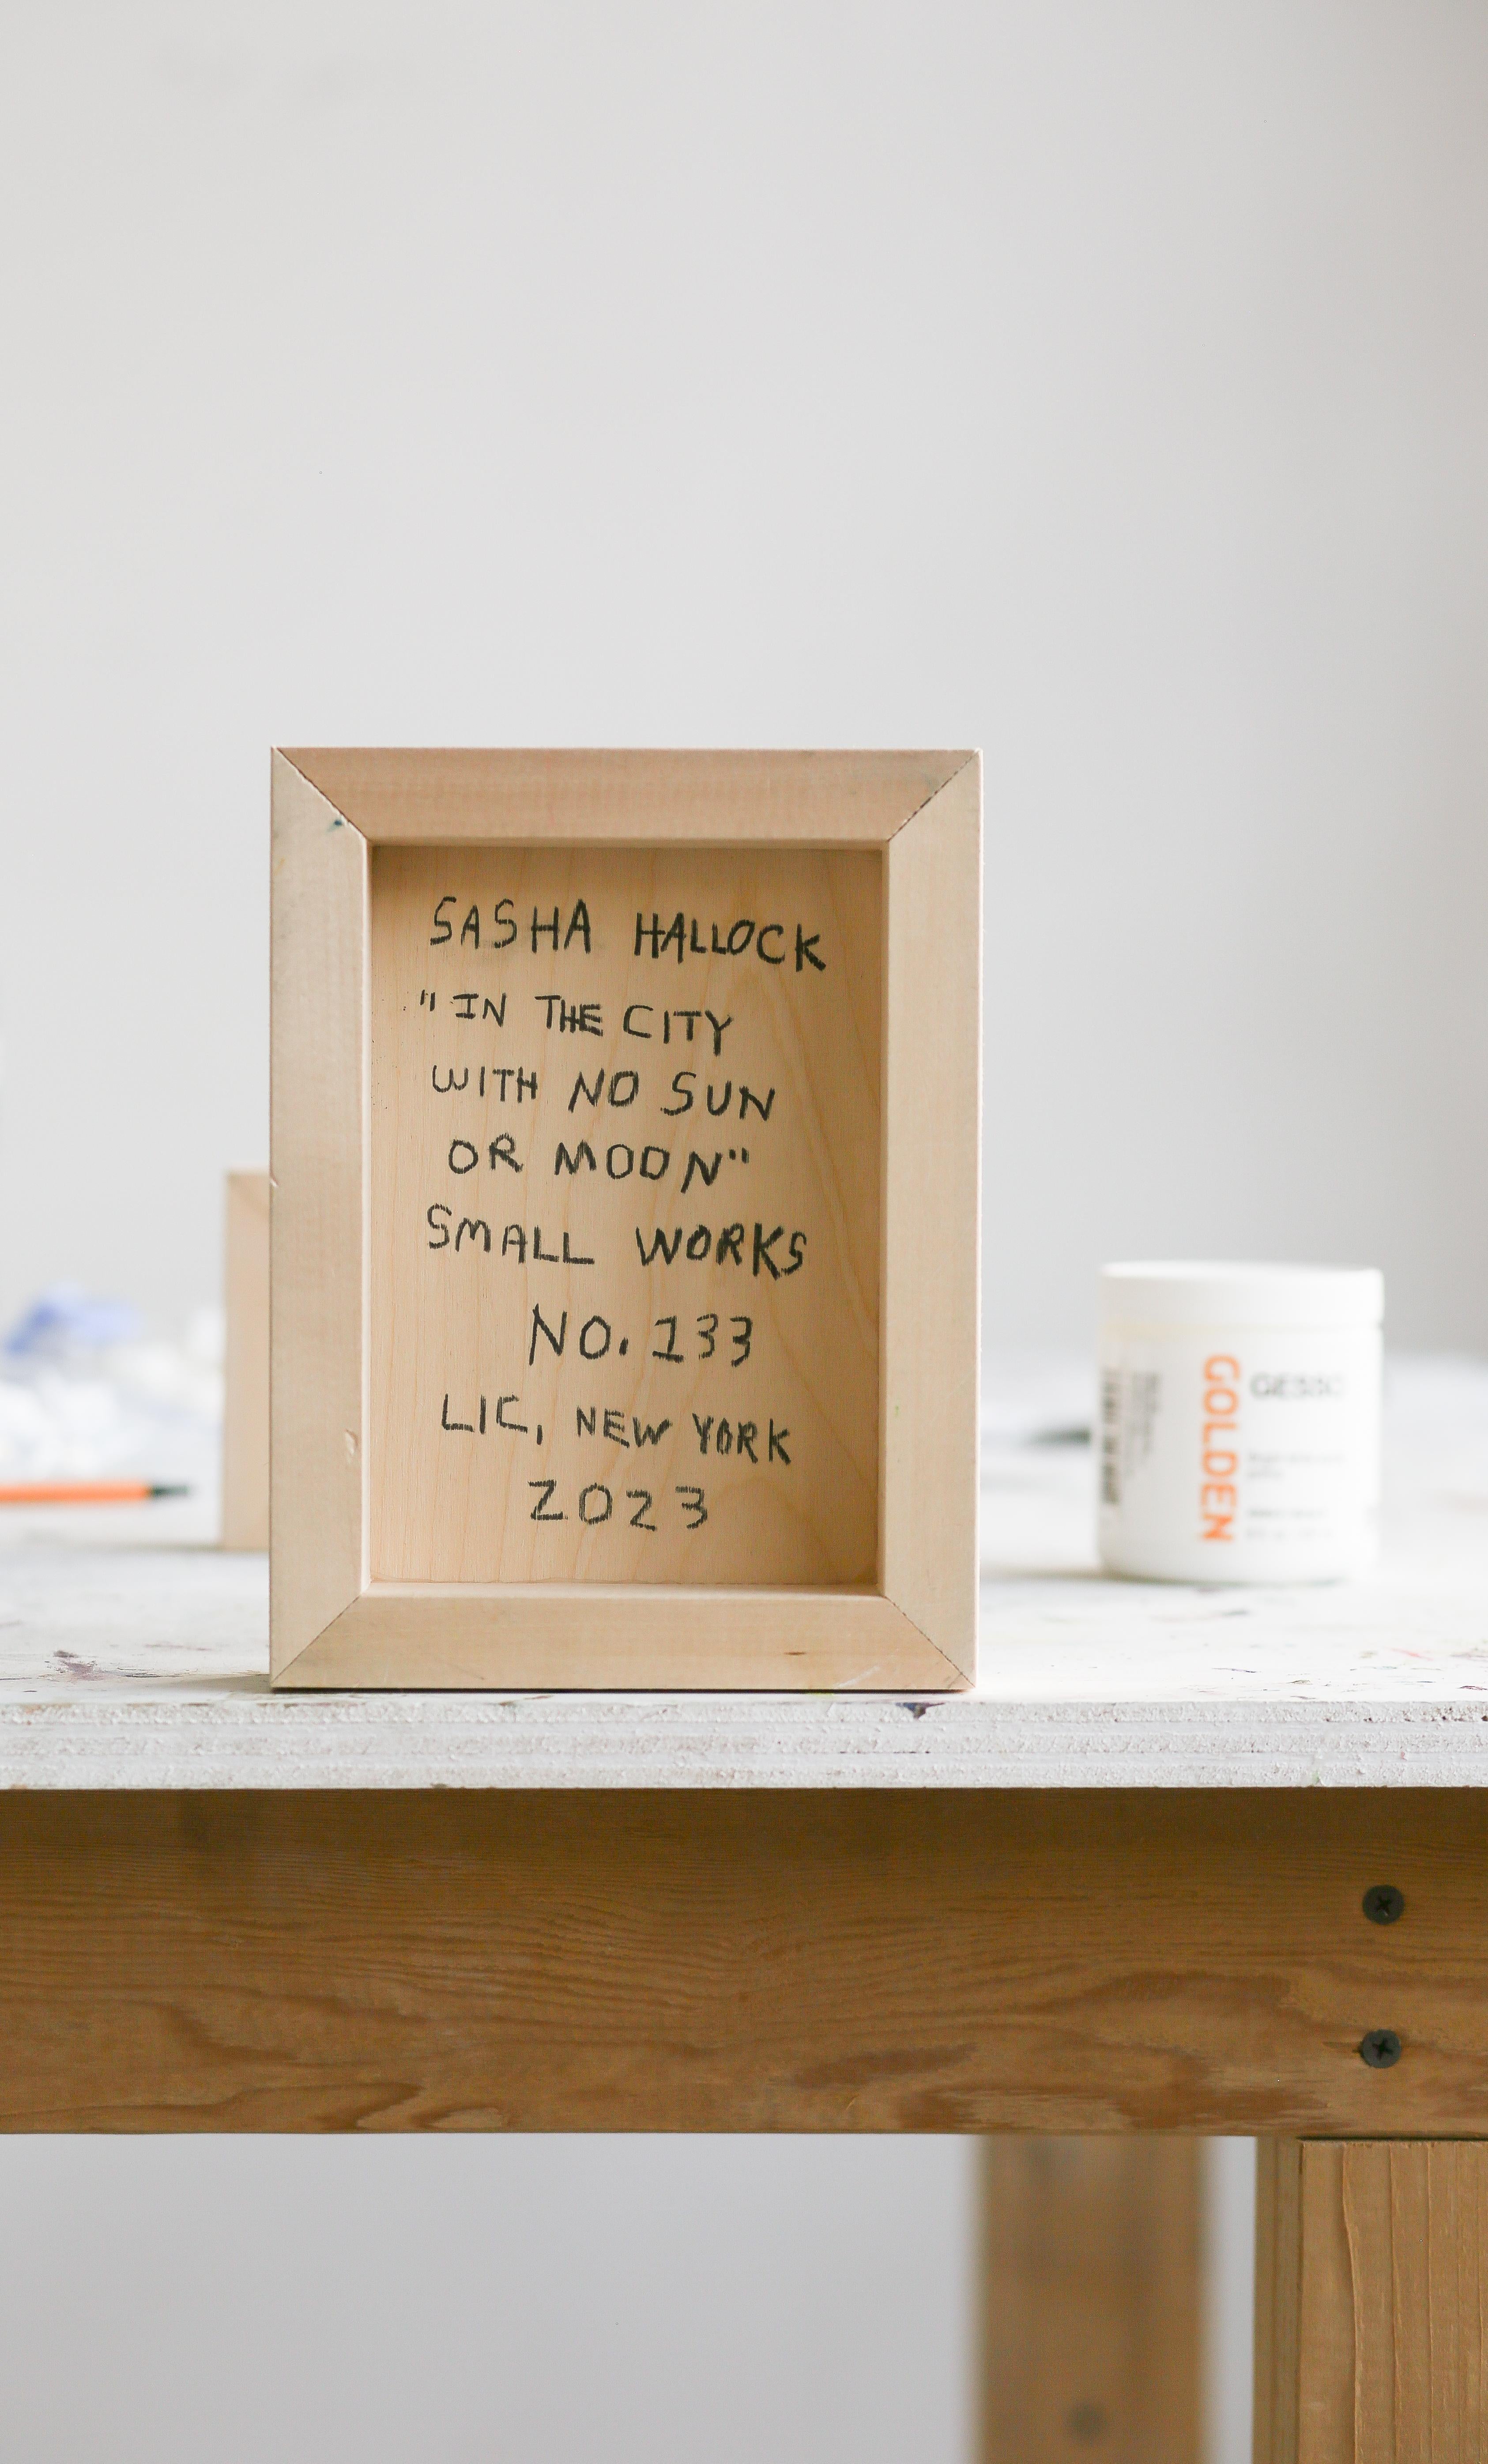 SASHA HALLOCK
"IN THE CITY
WITH NO SUN
OR MOON"
SMALL WORKS
NO. 133
LIC, NEW YORK
2023
GOLDEN
GESSO